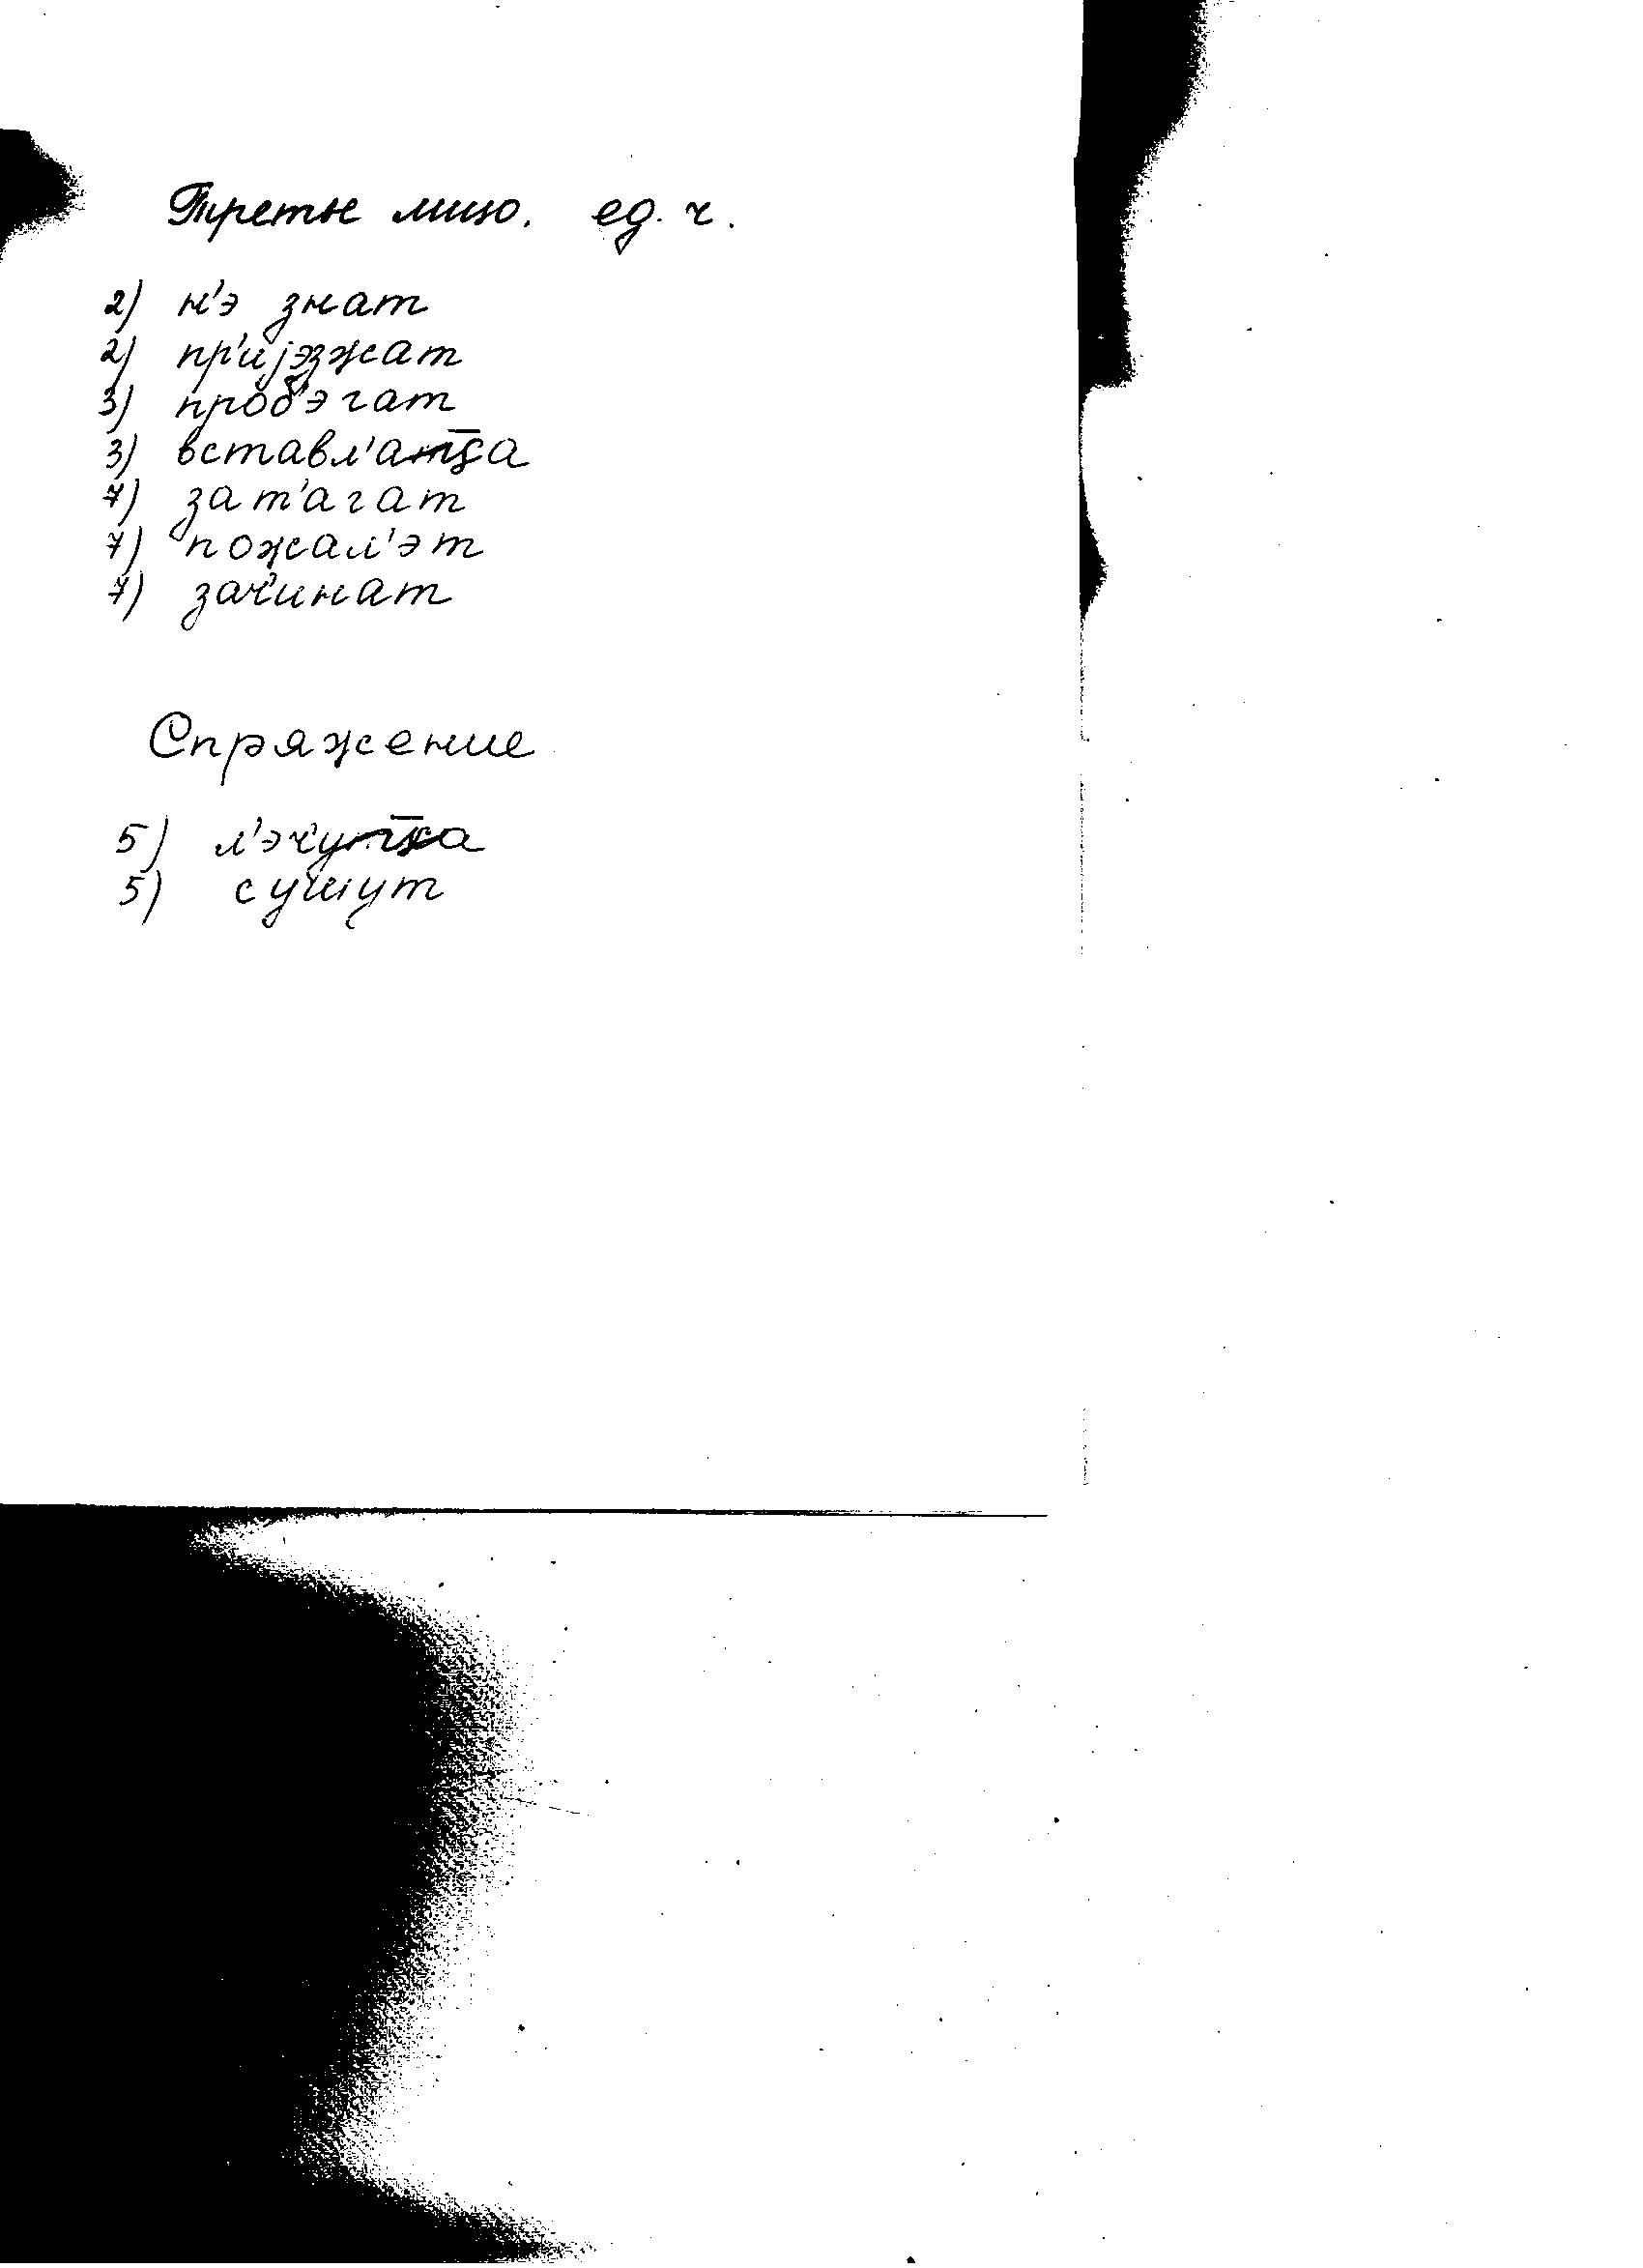 Третье лицо. ед. ч.
2) н'э знат
2) пр'ијэзжат
3) проб'эгат
3) вставл'ац̄а
7) зат'агат
7) пожал'эт
7) зач'инат
Спряжение
5) л'эч'уц̄а
5) сушут